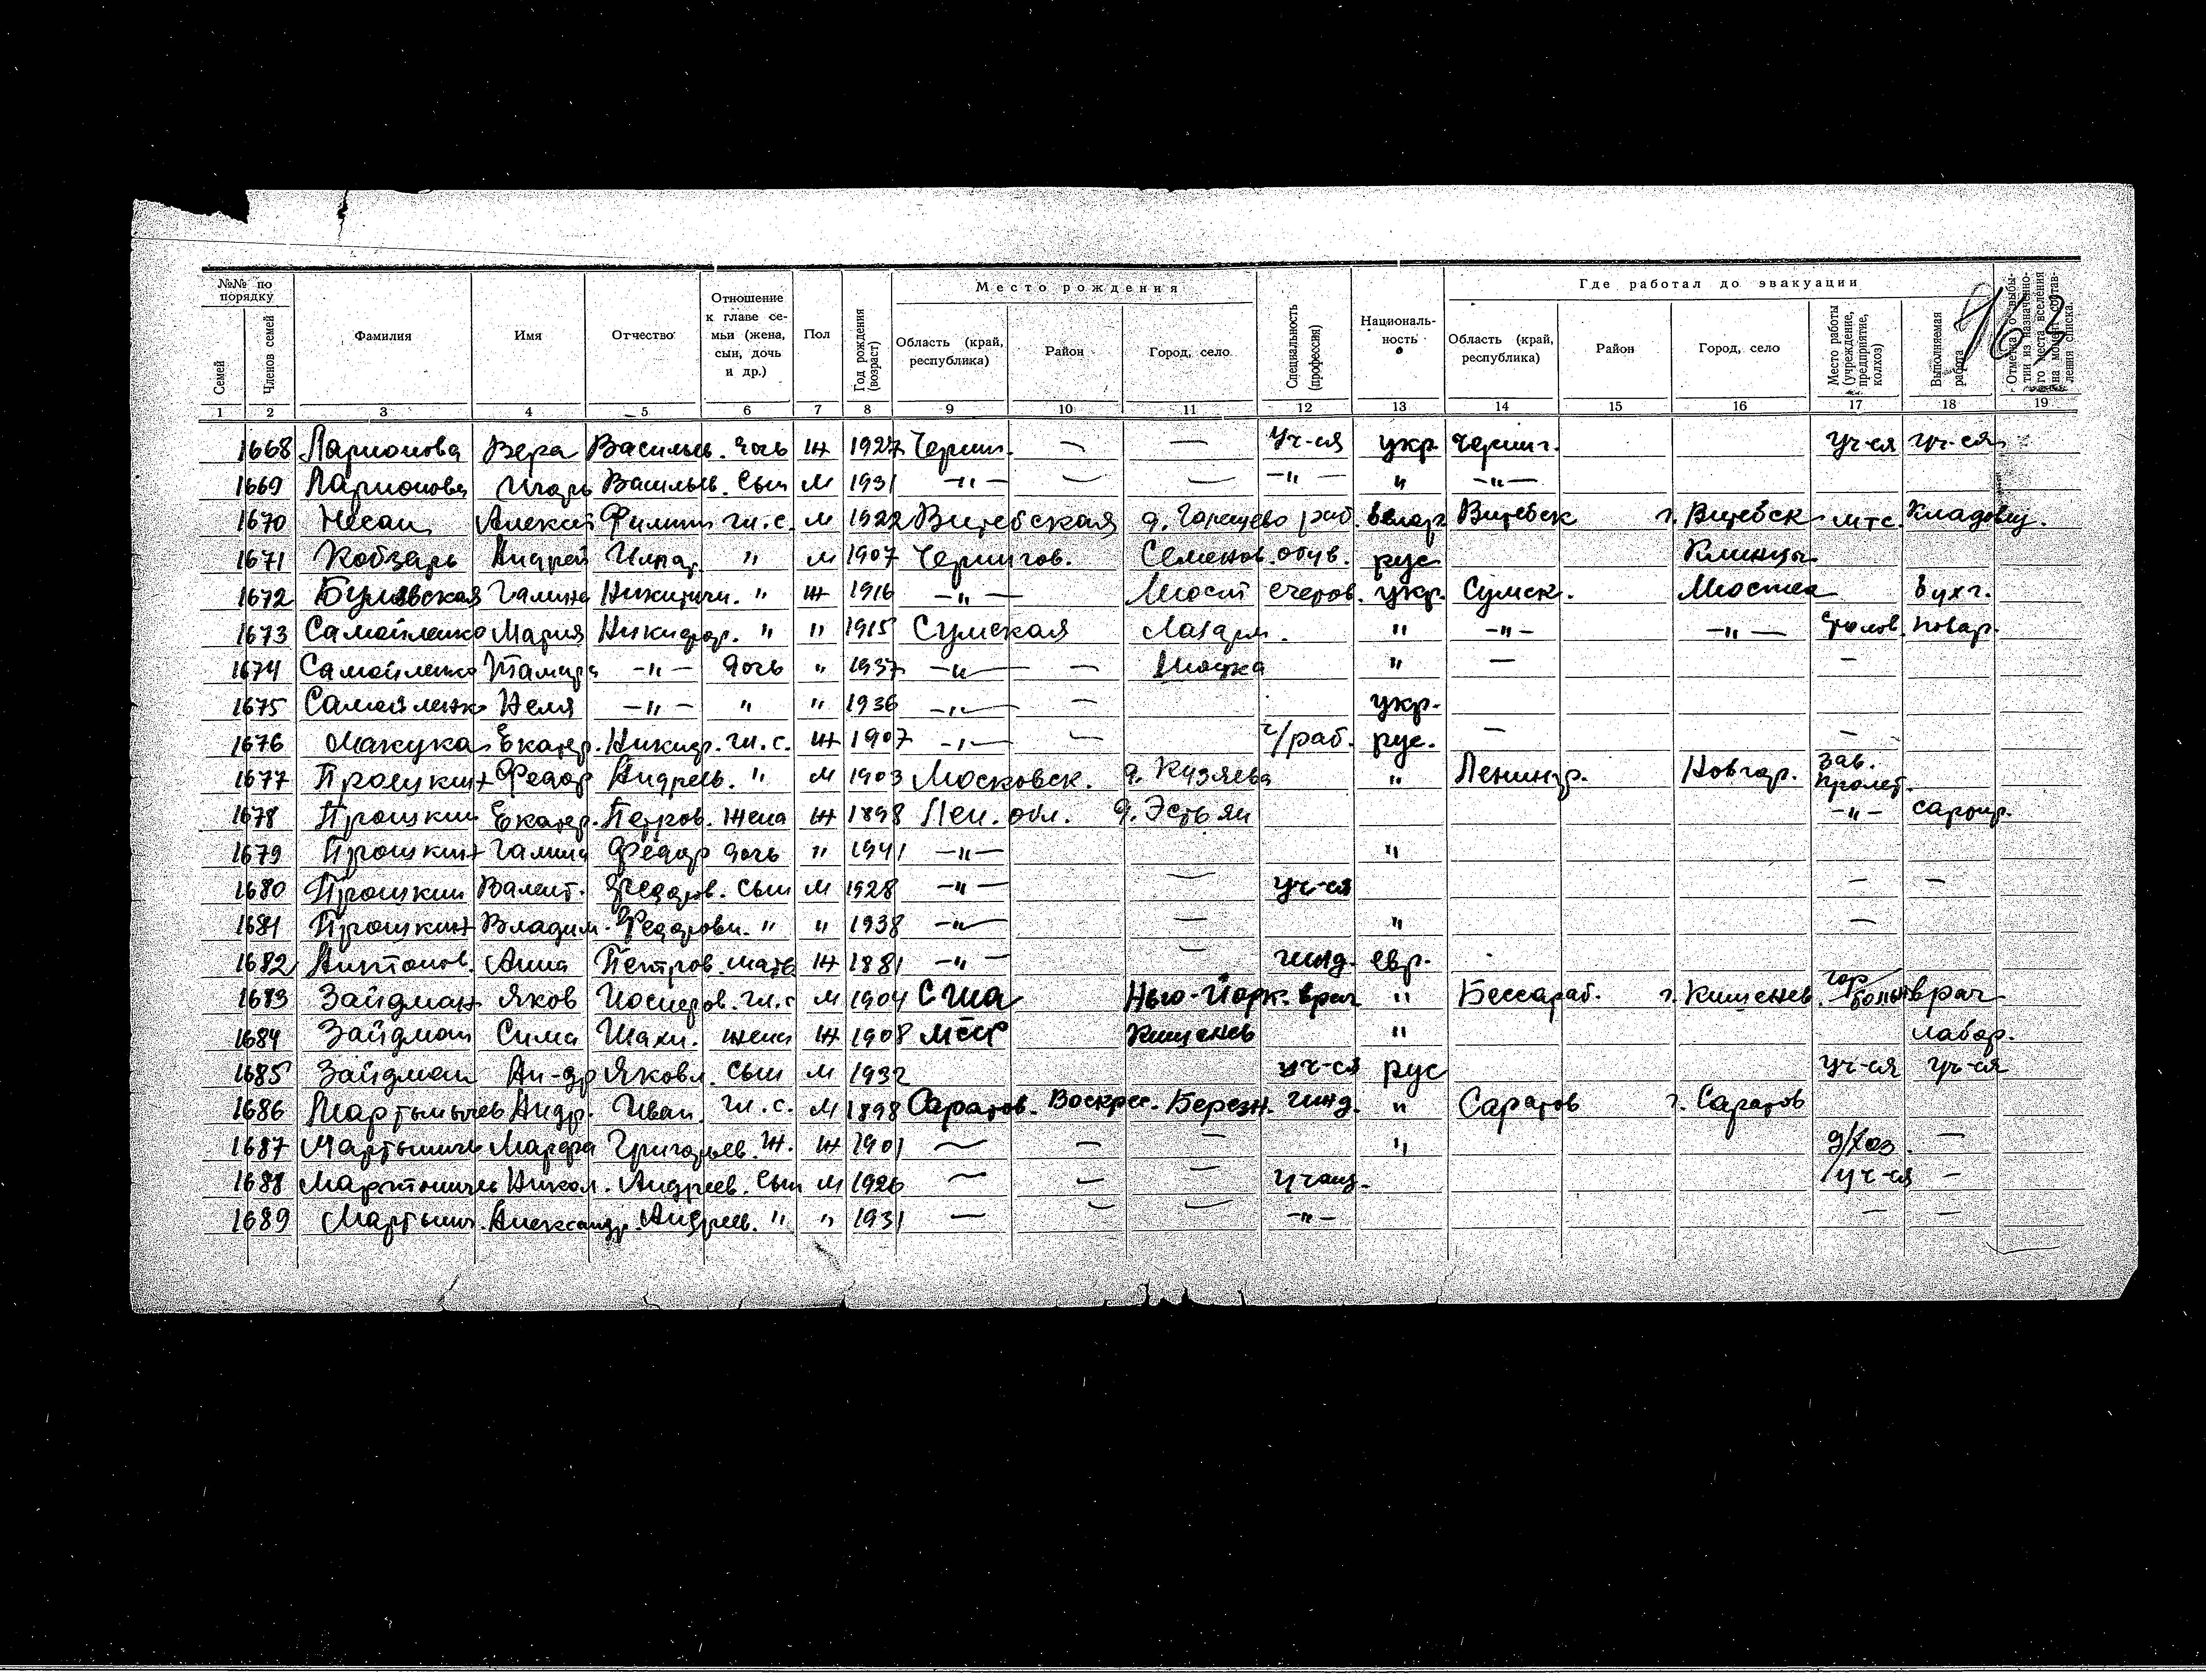 №№ по порядку Место рождения Где работал до эвакуации
Семей Членов семей Фамилия Имя Отчество Отношение к главе семьи (жена, сын, дочь и др.) Пол Год рождения (возраст) Область (край, республика) Район Город, село Специальность (профессия) Националь-ность Область (край, республика) Район Город, село Место работы (учреждение, предприятие, колхоз) Выполняемая работа
1 2 3 4 5 6 7 8 9 10 11 12 13 14 15 16 17 18 19
1668 Ларионова Вера Васильев. дочь Ж 1927 Черниг. — — Уч-ся укр. Черниг. Уч-ся уч-ся
1669 Ларионова Игорь Васильев. Сын М 1931 —"— — — —"— " —"—
1670 Несан Алексей Филип гл.с. М 1922 Витебская д. раб. белор Витебск г. Витебск мтс. Кладовщ.
1671 Кобзарь Андрей Игнат. " М 1907 Чернигов. Семенов. обув. рус Клинцы
1672 Галина Никитичн. " Ж 1916 —"— укр. Сумск. бухг.
1673 Самойленко Мария Никифор. " " 1915 Сумская " —"— —"— столов. повар.
1674 Самойленко Тамара —"— дочь " 1937 —"— — " — —
1675 Самойленко Неля —"— " " 1936 —"— — укр.
1676 Макука Екатер. Никифр. гл.с. Ж 1907 —"— — ч/раб. рус. — —
1677 Прошкин Федор Андреев. " М 1903 Московск. д. Кузяева " Ленингр. Новгор. Зав. Пролет.
1678 Прошкин Екатер. Петров. Жена Ж 1898 Лен. обл. д. Эстьян —"—
1679 Прошкин Галина Федор дочь " 1941 —"— "
1680 Прошкин Валент. Федоров. Сын М 1928 —"— — уч-ся — —
1681 Прошкин Владим. Федорович. " " 1938 —"— — " —
1682 Антонов. Анна Петров. мать Ж 1881 —"— — ижд. евр.
1683 Зайдман Яков Иосифов. гл.с М 1904 США Нью-Йорк. врач " Бессараб. г. Кишенев гор больн врач
1684 Зайдман Сима Шахн. жена Ж 1908 МССР Кишенев " лабор.
1685 Зайдман Ан-др Яковл. Сын М 1932 уч-ся рус уч-ся уч-ся
1686 Мартынычев Андр. Иван. гл.с. М 1898 Саратов. Воскрес. Березн. ижд. " Саратов г. Саратов
1687 Мартыничев Марфа Григорьев. Ж. Ж 1901 — — — " д/хоз. —
1688 Мартыничев Никол. Андреев. Сын М 1926 — — — учащ. уч-ся —
1689 Мартынич. Александр Андреев. " " 1931 — — — —"— — —